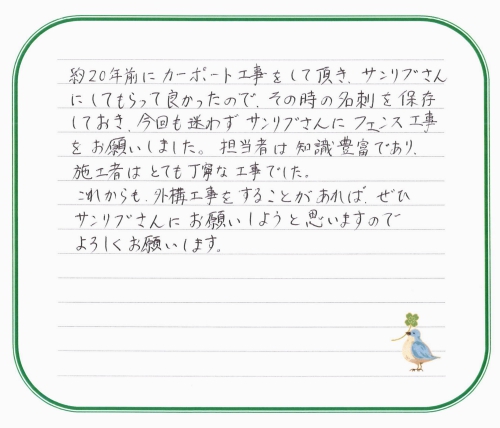 約20年前に カーポート工事をして頂き、サンリブさん
にしてもらって良かったので、その時の名刺を保存
しておき、今回も迷わず サンリブさんに フェンス工事
を お願いしました。 担当者は 知識豊富であり、
施工者は とても丁寧な工事でした。
これからも、外構工事をすることがあれば、ぜひ
サンリブさんに お願いしようと思いますので
よろしくお願いします。